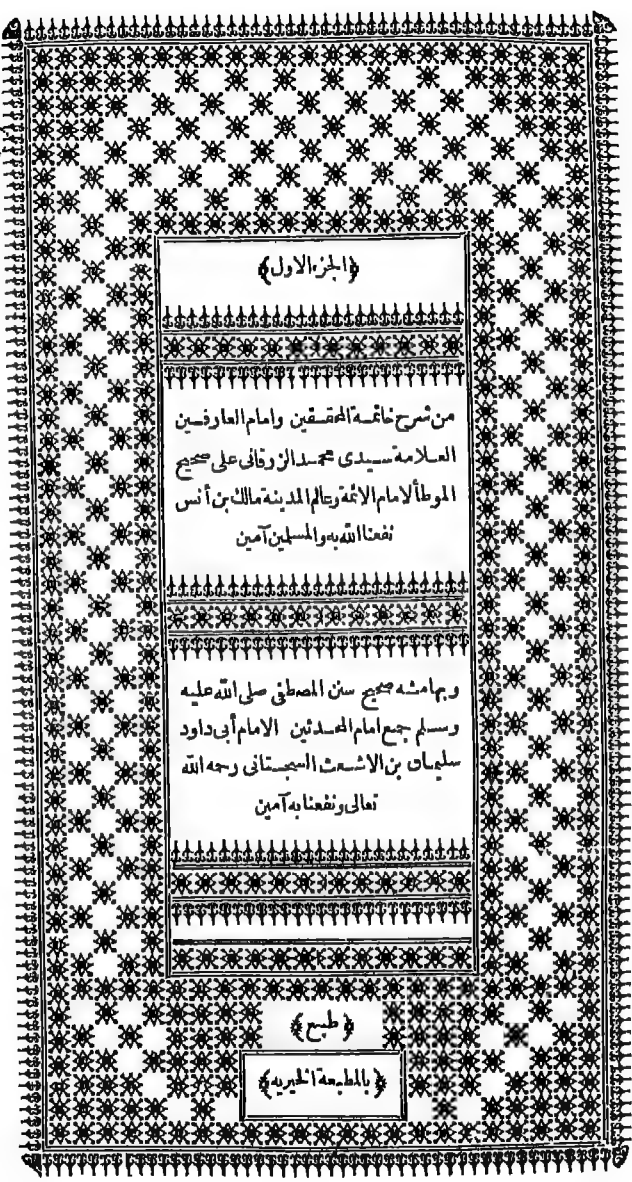 ﴿الجزء الاول﴾
من شرح خاتمة المحققين وامام العارفين
العلامة سيدى محمد الزرقانى على صحيح
الموطأ لامام الائمة وعالم المدينة مالك بن أنس
نفعنا الله به والمسلمين آمين
وبهامشه صحيح سنن المصطفى صلى الله عليه
وسلم جمع امام المحدثين الامام أبى داود
سليمان بن الاشعث السجستانى رحمه الله
تعالى ونفعنا به آمين
﴿طبع﴾
﴿بالمطبعة الخيرية﴾